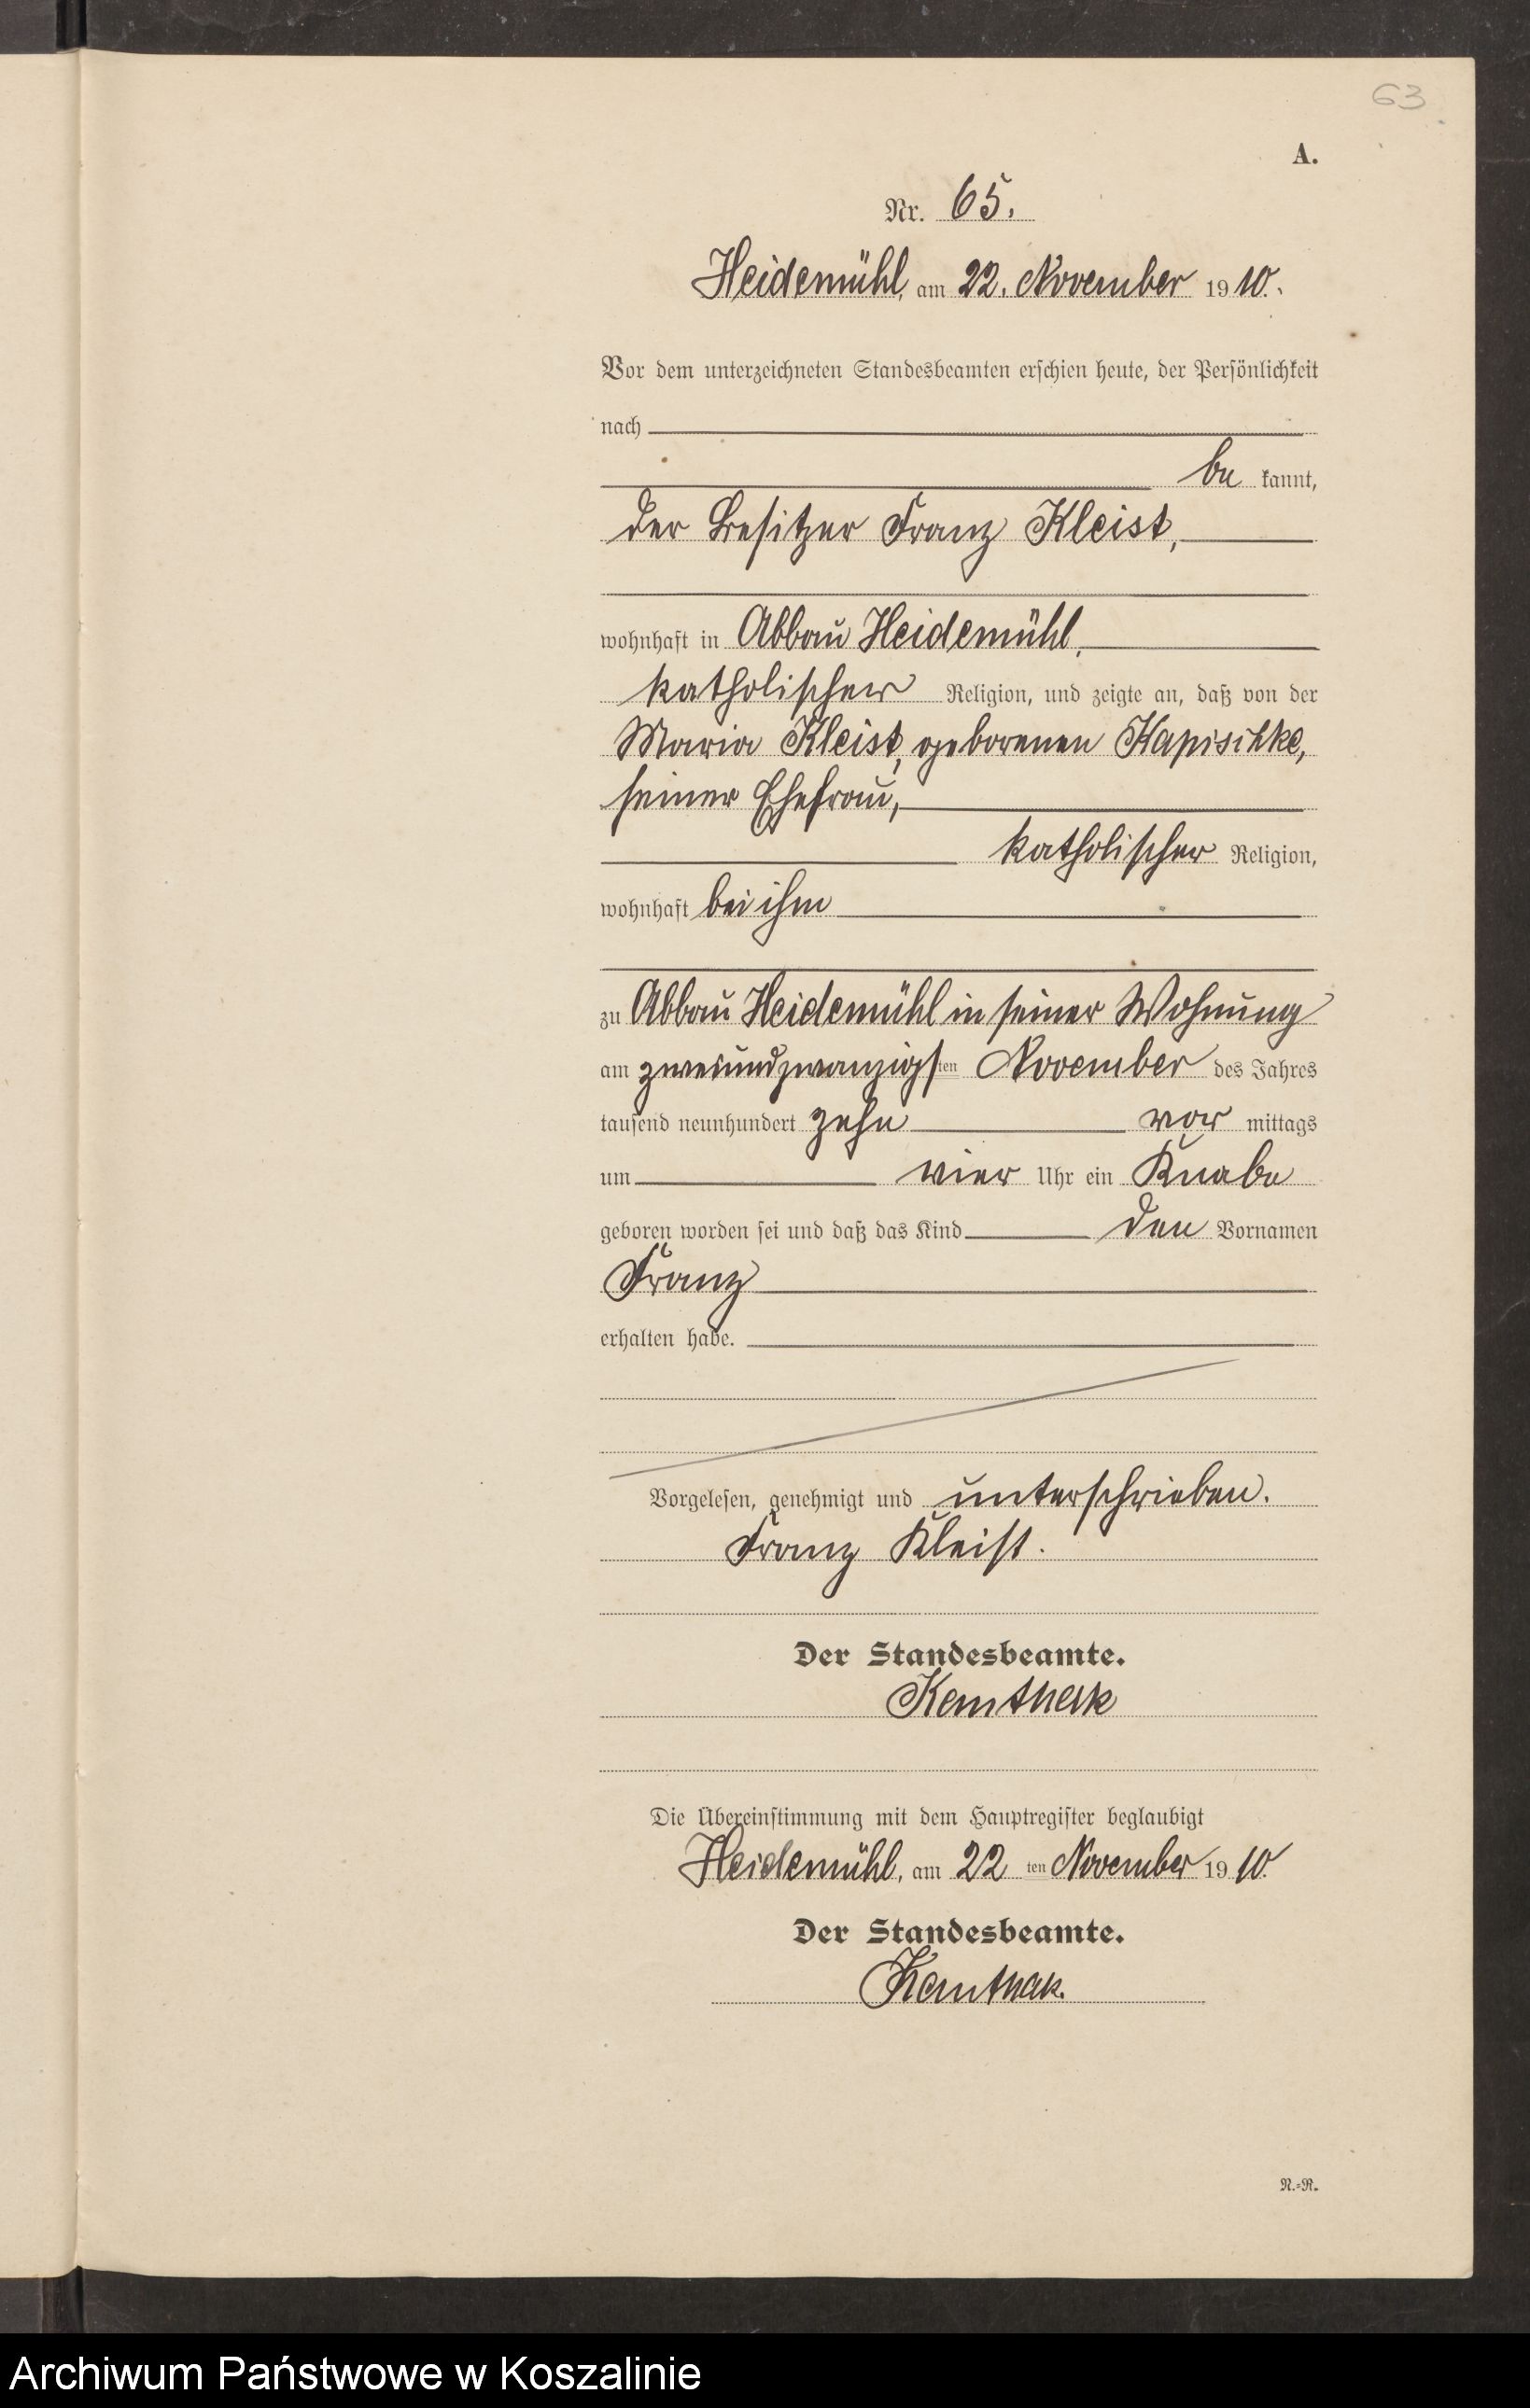 63
A.
Nr. 65.
Heidemühl, am 22. November 1910.
Vor dem unterzeichneten Standesbeamten erschien heute, der Persönlichkeit
nach
be kannt,
der Besitzer Franz Kleist,
wohnhaft in Abbau Heidemühl,
katholischer Religion, und zeigte an, daß von der
Maria Kleist, geborenen Kapischke,
seiner Ehefrau,
katholischer Religion,
wohnhaft bei ihm
zu Abbau Heidemühl in seiner Wohnung
am zweiundzwanzigsten November des Jahres
tausend neunhundert zehn vor mittags
um vier Uhr ein Knabe
geboren worden sei und daß das Kind den Vornamen
Franz
erhalten habe.
Vorgelesen, genehmigt und unterschrieben.
Franz Kleist.
Der Standesbeamte.
Die Übereinstimmung mit dem Hauptregister beglaubigt
Heidemühl, am 22 ten November 1910.
Der Standesbeamte.
N.=R.
Archiwum Państwowe w Koszalinie